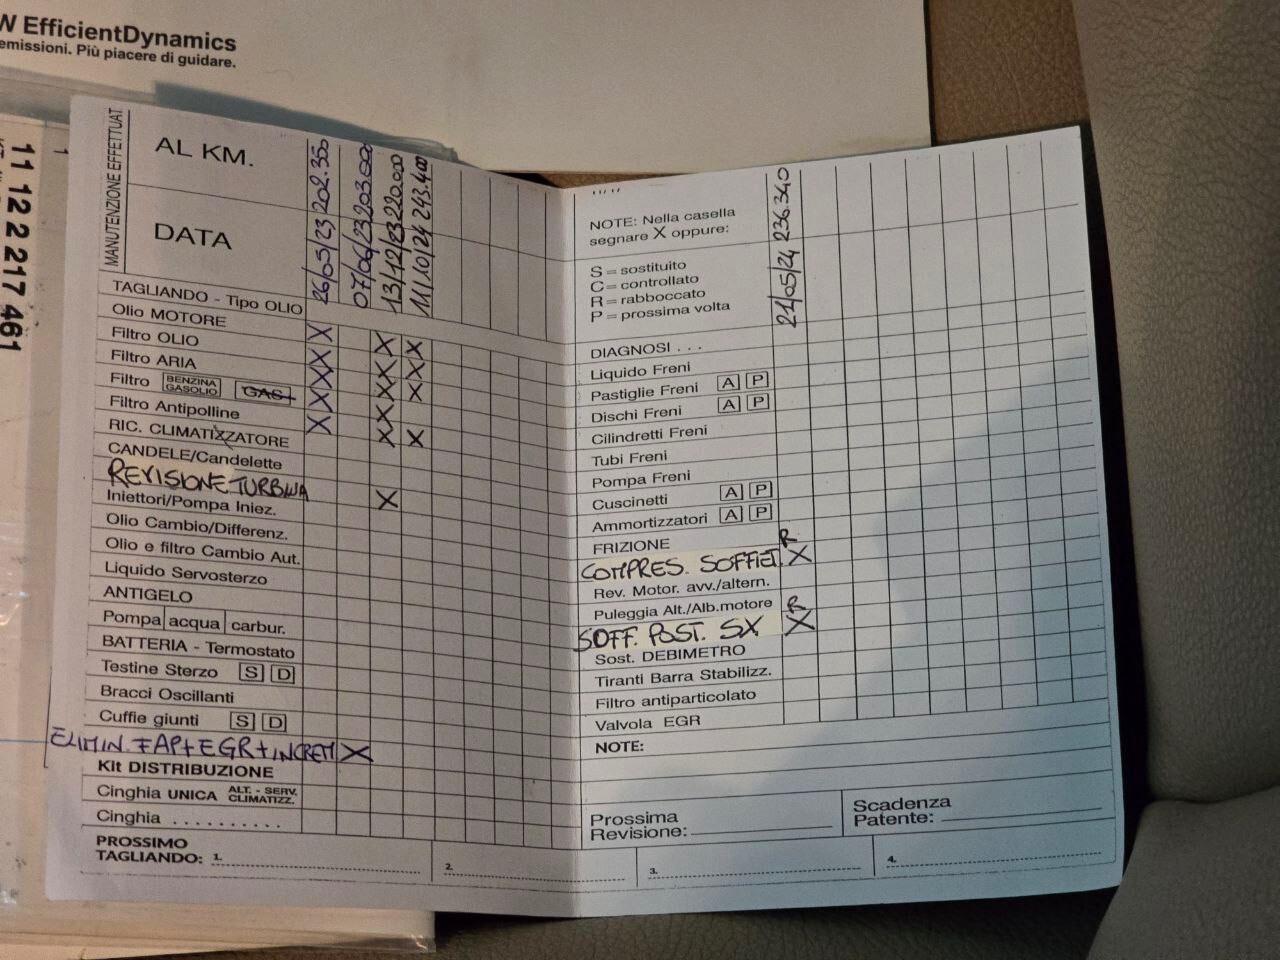 W EfficientDynamics
emissioni. Più piacere di guidare.
11 12 2 217 461
MANUTENZIONE EFFETTUAT
AL KM.
202.350
203.000
220.000
243.400
DATA
26/05/23
07/06/23
13/12/23
11/10/24
TAGLIANDO - Tipo OLIO
Olio MOTORE X
Filtro OLIO X X X
Filtro ARIA X X X
Filtro BENZINA GASOLIO GAS X X
Filtro Antipolline X X
RIC. CLIMATIZZATORE X X
CANDELE/Candelette
REVISIONE TURBINA
Iniettori/Pompa Iniez. X
Olio Cambio/Differenz.
Olio e filtro Cambio Aut.
Liquido Servosterzo
ANTIGELO
Pompa acqua carbur.
BATTERIA - Termostato
Testine Sterzo S D
Bracci Oscillanti
Cuffie giunti S D
ELIMIN. FAP+EGR+INCREM X
Kit DISTRIBUZIONE
Cinghia UNICA ALT. - SERV. CLIMATIZZ.
Cinghia ..........
PROSSIMO
TAGLIANDO: 1.
2.
NOTE: Nella casella
segnare X oppure:
S = sostituito
C = controllato
R = rabboccato
P = prossima volta
236.340
21/05/24
DIAGNOSI ...
Liquido Freni
Pastiglie Freni A P
Dischi Freni A P
Cilindretti Freni
Tubi Freni
Pompa Freni
Cuscinetti A P
Ammortizzatori A P
FRIZIONE R
COMPRES. SOFFIET. X
Rev. Motor. avv./altern.
Puleggia Alt./Alb.motore R
SOFF. POST. SX X
Sost. DEBIMETRO
Tiranti Barra Stabilizz.
Filtro antiparticolato
Valvola EGR
NOTE:
Prossima
Revisione:
Scadenza
Patente:
3.
4.